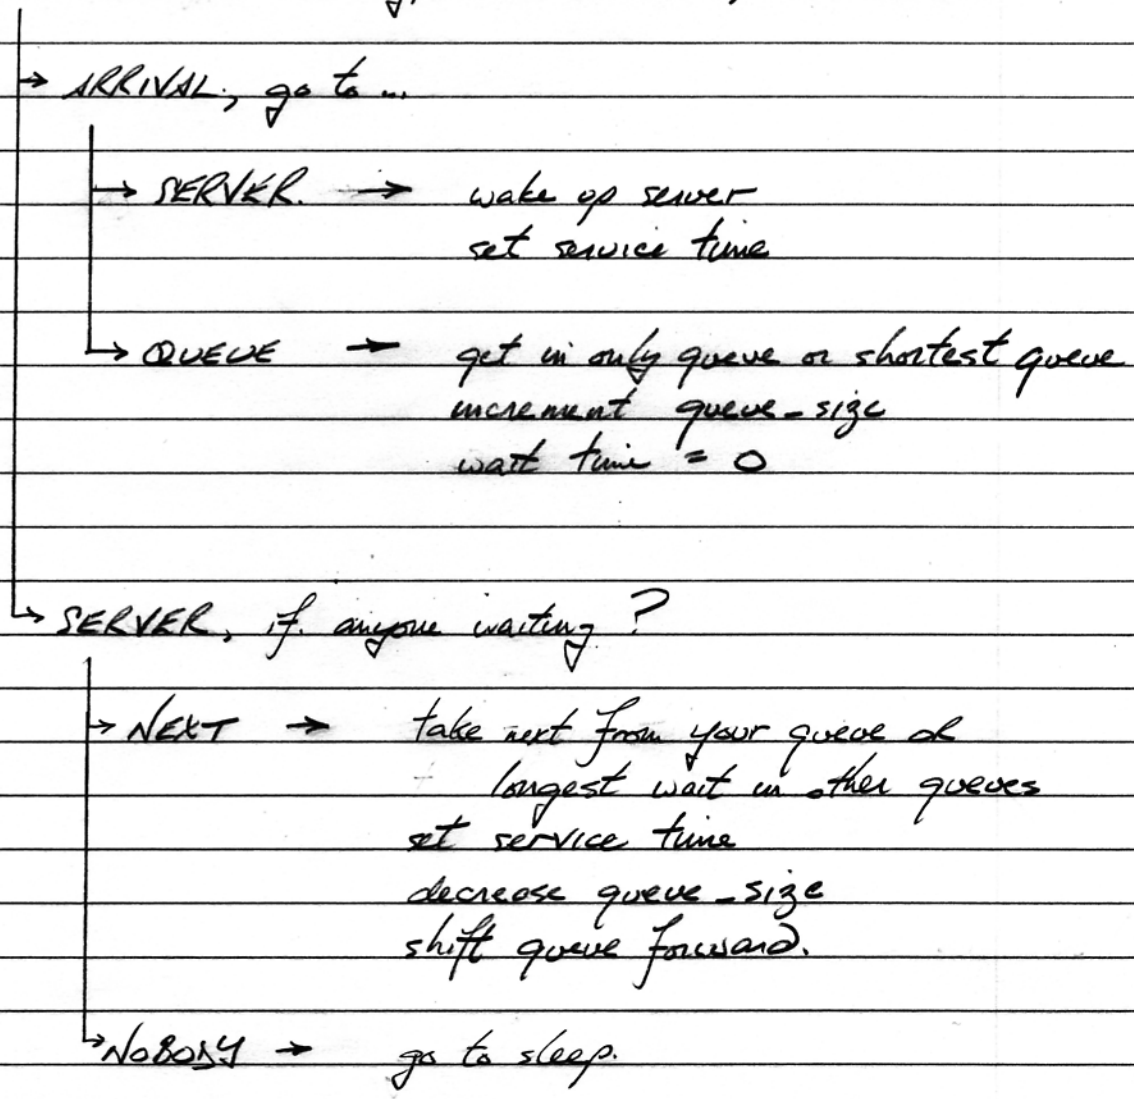 → ARRIVAL, go to ...
→ SERVER. → wake up server
set service time
→ QUEUE → get in only queue or shortest queue
increment queue_size
wait time = 0
→ SERVER, if anyone waiting?
→ NEXT → take next from your queue or
longest wait in other queues
set service time
decrease queue_size
shift queue forward.
→ NOBODY → go to sleep.